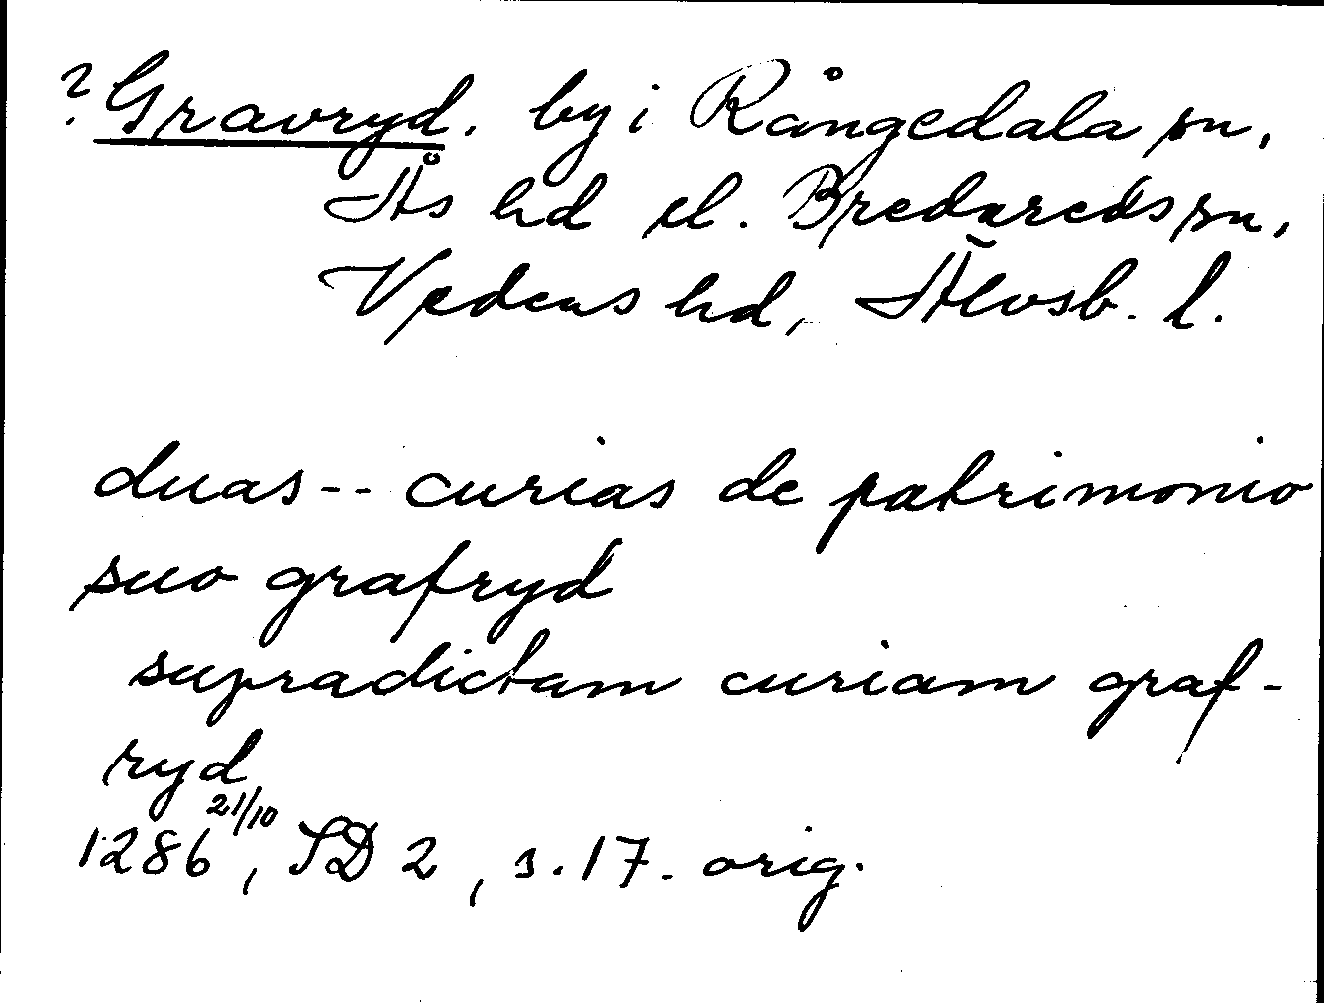 ? Gravryd. by i Rångedala sn,
Ås hd el. Bredareds sn,
Vedens hd, Älvsb. l.
duas -- curias de patrimonio
suo grafryd
supradictam curiam graf-
ryd
1286 21/10, SD 2, s. 17. orig.